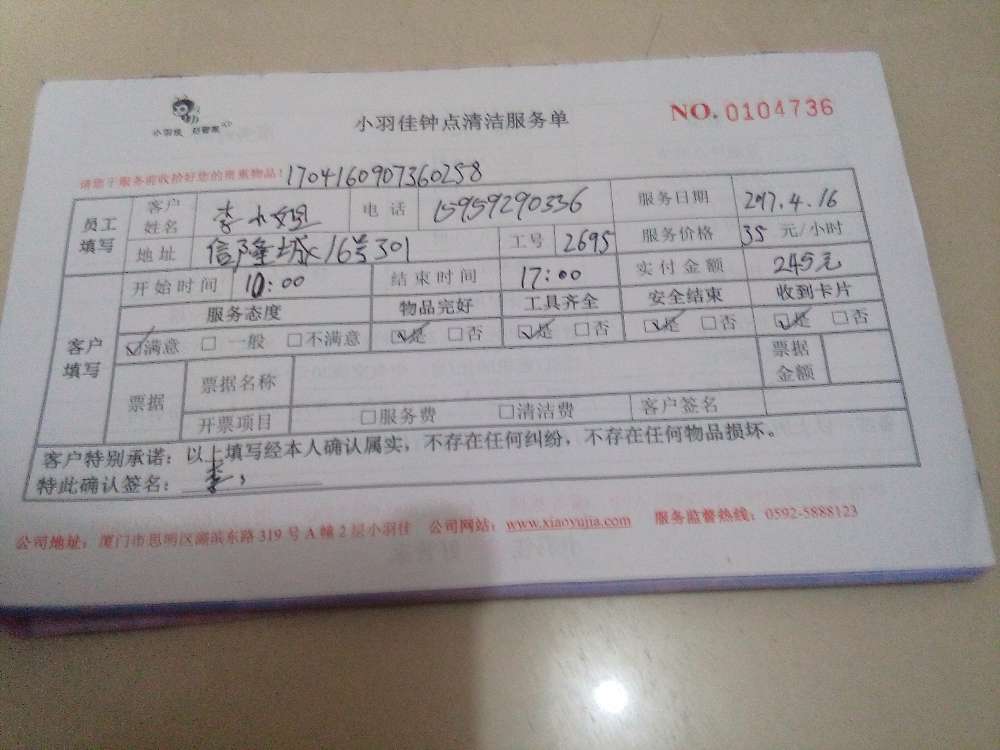 小羽佳钟点清洁服务单
NO. 0104736
小羽佳
请您于服务前收拾好您的贵重物品! 1704160907360258
员工填写 客户姓名 李小姐 电话 15959290336 服务日期 2017.4.16
地址 信隆城16号301 工号 2695 服务价格 35 元/小时
开始时间 10:00 结束时间 17:00 实付金额 245元
客户填写 服务态度 物品完好 工具齐全 安全结束 收到卡片
☑满意 □一般 □不满意 ☑是 □否 ☑是 □否 ☑是 □否 ☑是 □否
票据 票据名称 票据金额
开票项目 □服务费 □清洁费 客户签名
客户特别承诺：以上填写经本人确认属实，不存在任何纠纷，不存在任何物品损坏。
特此确认签名： 李
公司地址：厦门市思明区湖滨东路319号A幢2层小羽佳 公司网站：www.xiaoyujia.com 服务监督热线：0592-5888123